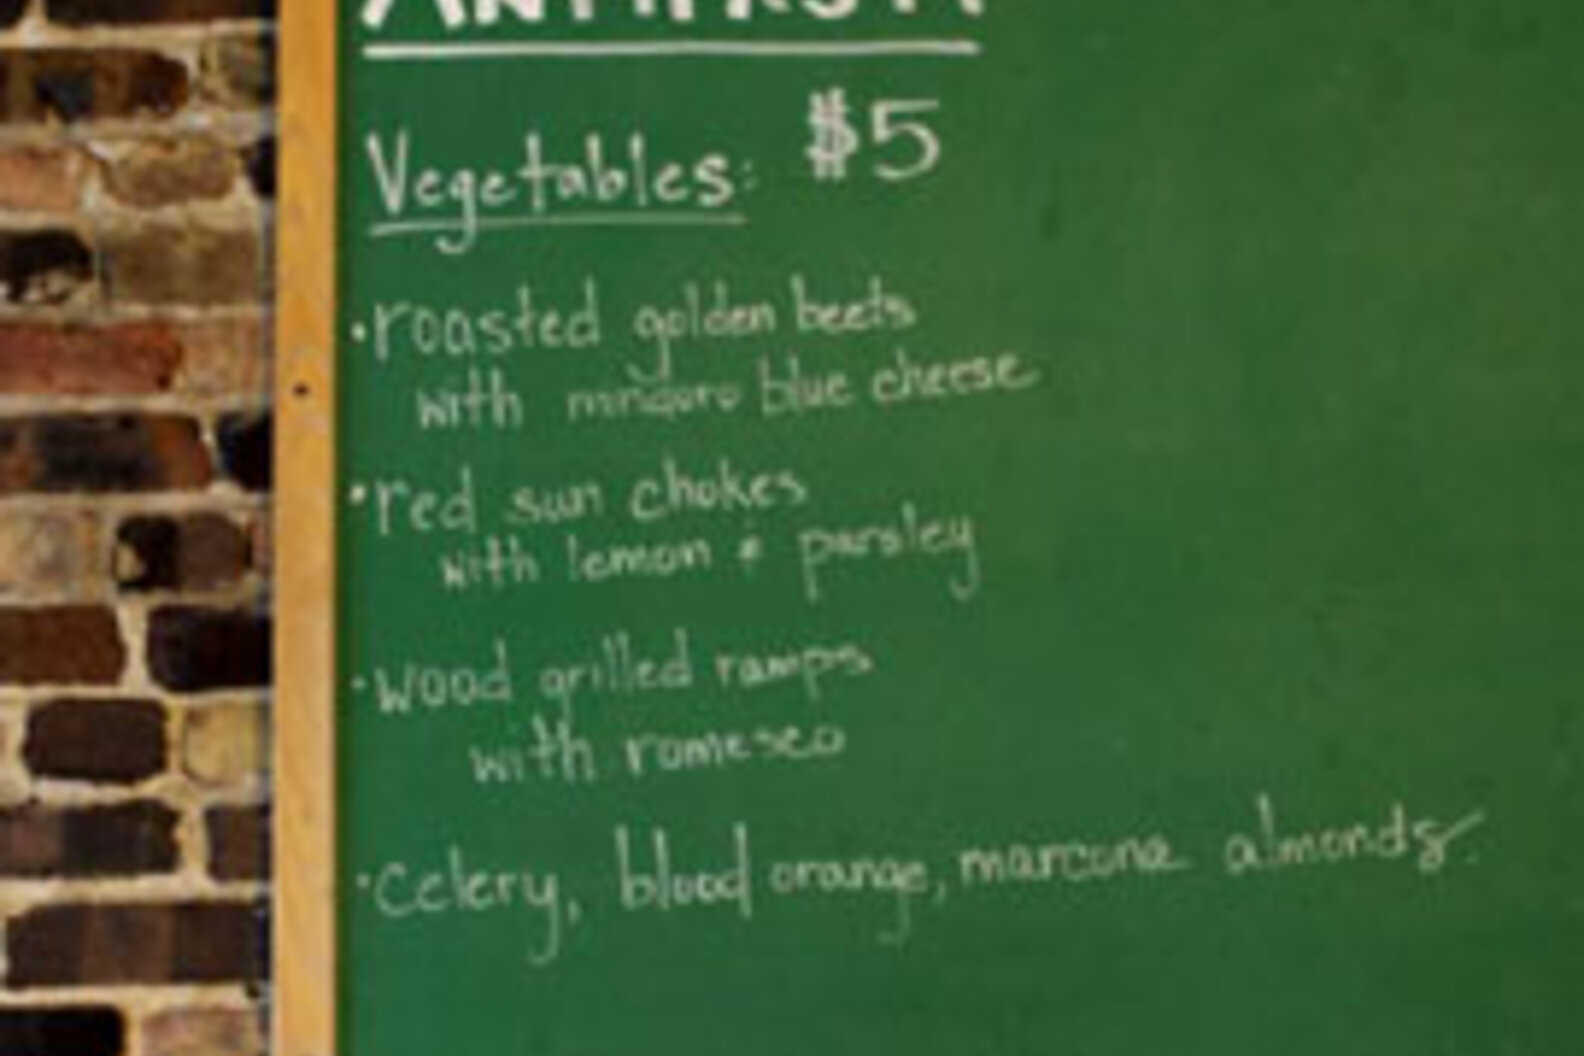 ANTIPASTI
Vegetables: $5
·roasted golden beets
with mindoro blue cheese
·red sun chokes
with lemon & parsley
·wood grilled ramps
with romesco
·celery, blood orange, marcona almonds.